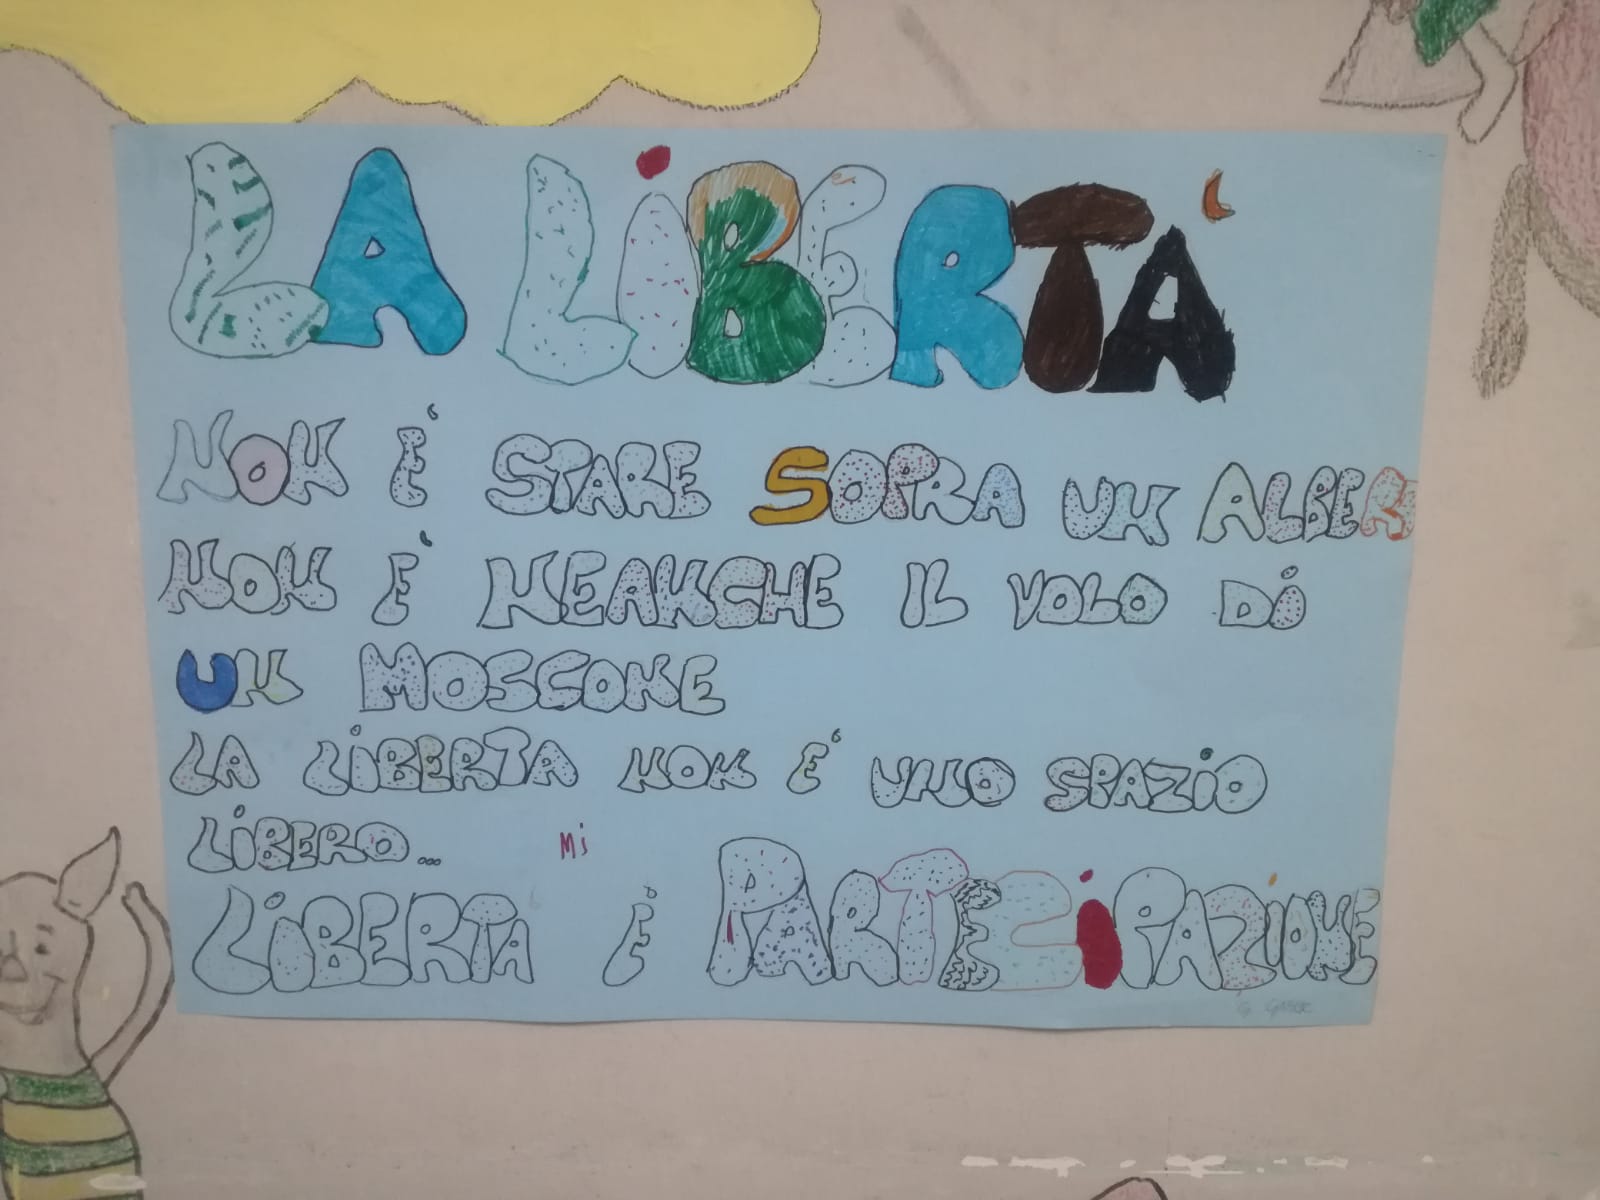 LA LIBERTÀ
NON È STARE SOPRA UN ALBER
NON È NEANCHE IL VOLO DI
UN MOSCONE
LA LIBERTA NON È UNO SPAZIO
LIBERO...
Mi
LIBERTA È PARTECIPAZIONE
G. GABER